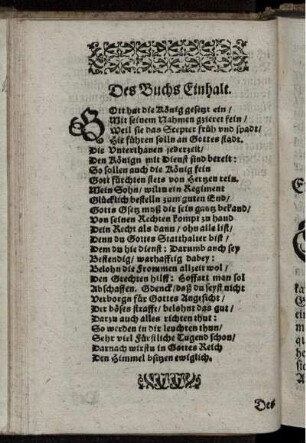 Des Buchs Einhalt.
GOtt hat die König gesetzt ein /
Mit seinem Nahmen gzieret fein /
Weil sie das Scepter früh vnd spadt /
Hie führen solln an Gottes stadt.
Die Vnterthanen jederzeit /
Den Könign mit Dienst sind bereit:
So sollen auch die König fein
Gott fürchten stets von Hertzen rein.
Mein Sohn / wiltu ein Regiment
Glücklich bestelln zum guten End /
Gotts Gsetz muß dir sein gantz bekand /
Von seinen Rechten kompt zu hand
Dein Recht als dann / ohn alle list /
Denn du Gottes Statthalter bist /
Dem du hie dienst: Darumb auch sey
Bestendig / warhafftig dabey:
Belohn die Frommen allzeit wol /
Den Grechten hilff: Hoffart man sol
Abschaffen. Gdenck / daß du seyst nicht
Verborgn für Gottes Angesicht /
Der böses strafft / belohnt das gut /
Darzu auch alles richten thut:
So werden in dir leuchten thun /
Sehr viel Fürstliche Tugend schon /
Darnach wirstu in Gottes Reich
Den Himmel bsitzen ewiglich.
Des